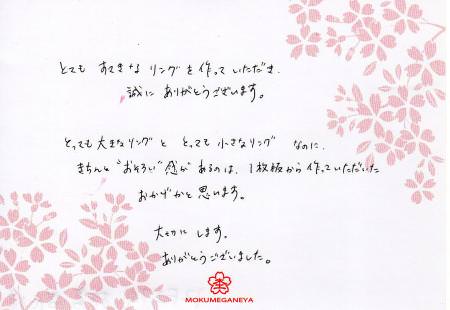 とても すてきな リングを 作って いただき、
誠に ありがとうございます。
とっても 大きなリングと とっても 小さなリング なのに、
きちんと “おそろい” 感が あるのは、1枚板から 作っていただいた
おかげかと 思います。
大切に します。
ありがとうございました。
MOKUMEGANEYA